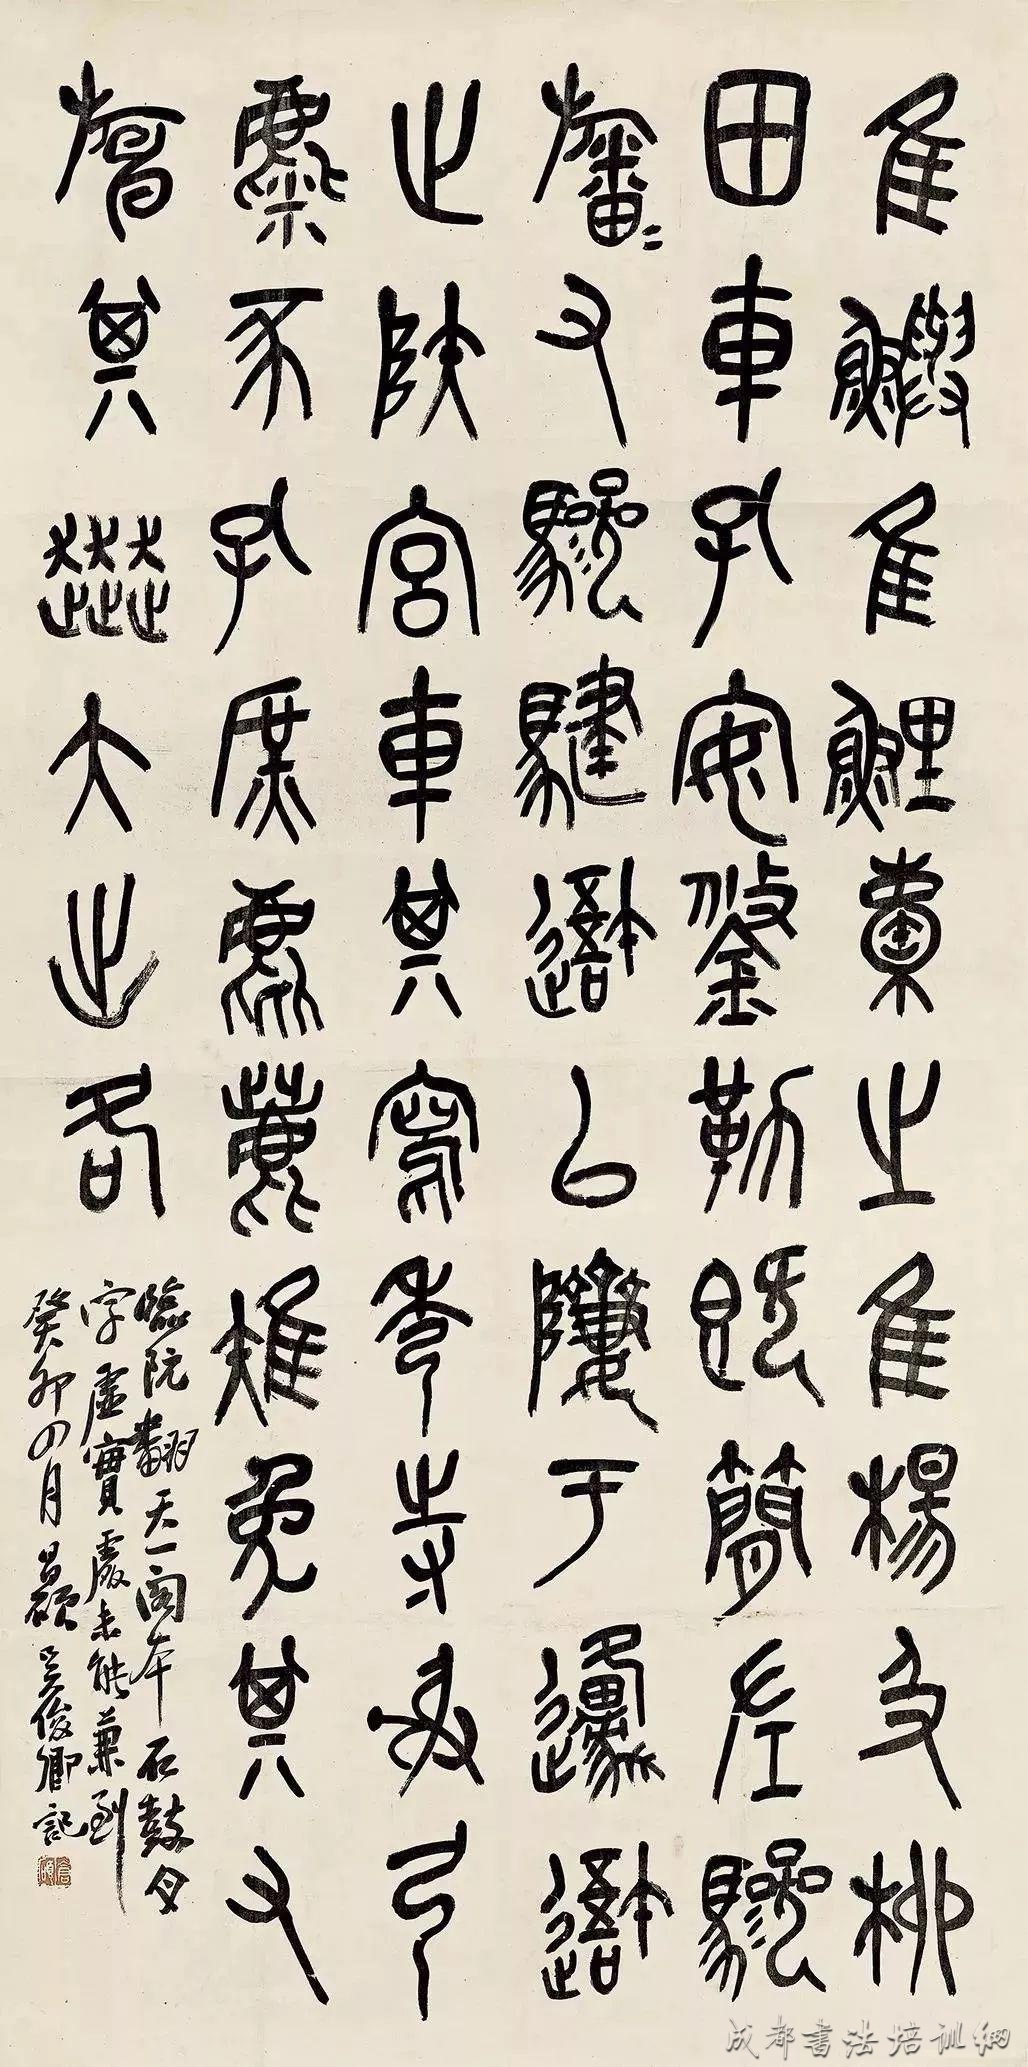 隹鱮隹鯉橐之隹楊及柳
田車孔安鋚勒既簡左驂
旛=右驂騝𨖍以隮于邍𨖍
止陝宮車其寫秀寺射弓
麋豕孔庶麀鹿雉兔其又
其大出各
臨阮翻天一閣本石鼓文
字虛實處未能兼到
癸卯四月昌碩吳俊卿記
倉碩
成都書法培訓網